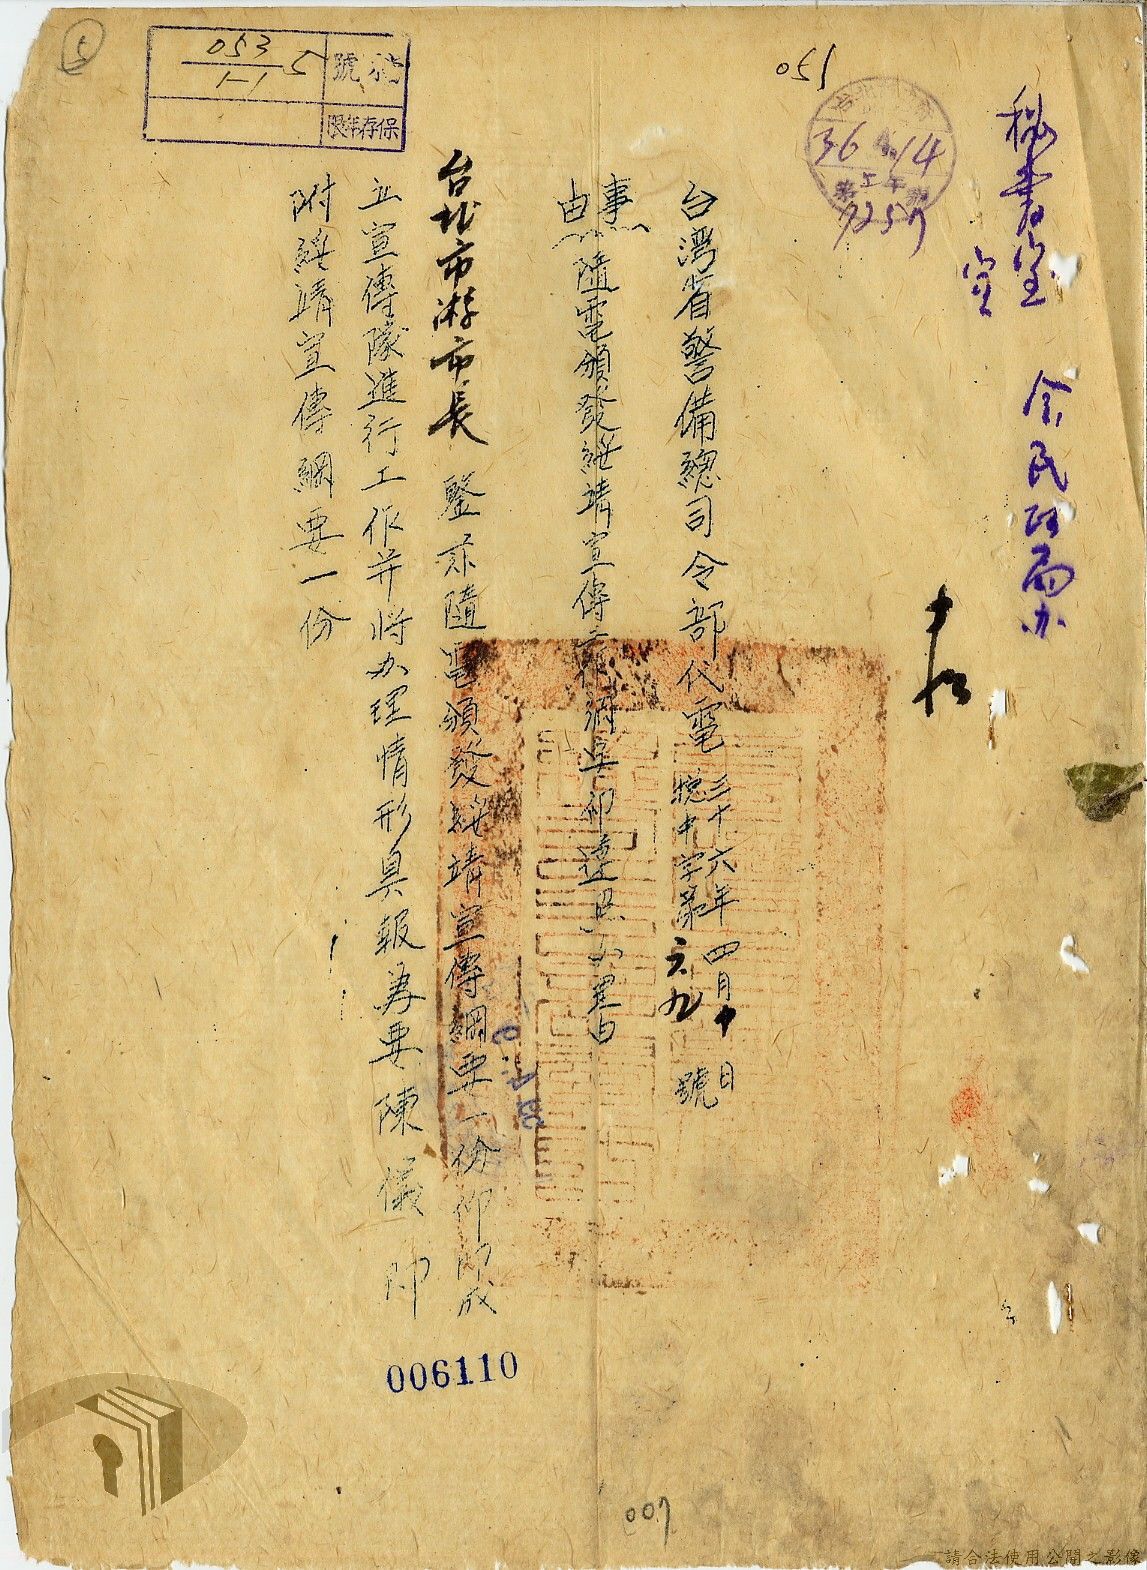 秘書室
会民政局办
051
36 4 14
7257
台灣省警備總司令部代電
三十六年四月十日
總中字第 六九 號
事由
隨電頒發綏靖宣傳工作綱要仰遵照办理由
台北市游市長 鑒茲隨電頒發綏靖宣傳綱要一份仰即成
立宣傳隊進行工作并將办理情形具報為要陳儀 印
附綏靖宣傳綱要一份
號
053
1-1
5
保存年限
5
006110
007
請合法使用公開之影像